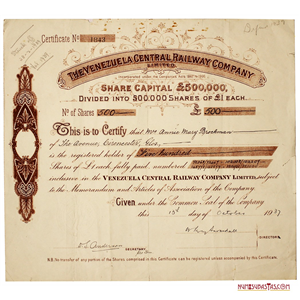 Certificate No. 1643
THE VENEZUELA CENTRAL RAILWAY COMPANY
LIMITED.
SHARE CAPITAL £500,000,
DIVIDED INTO 500,000 SHARES OF £1 EACH.
No of Shares 500 £ 500
This is to Certify that Mrs Annie Mary
of The Avenue, Cirencester, Glos.
is the registered holder of Five Hundred
Shares of £1 each fully paid numbered
inclusive in the VENEZUELA CENTRAL RAILWAY COMPANY LIMITED, subject
to the Memorandum and Articles of Association of the Company.
Given under the Common Seal of the Company
this day of October 1937
DIRECTORS.
SECRETARY.
N.B. No transfer of any portion of the Shares comprised in this Certificate can be registered unless accompanied by this Certificate.
NUMISUBASTAS.COM